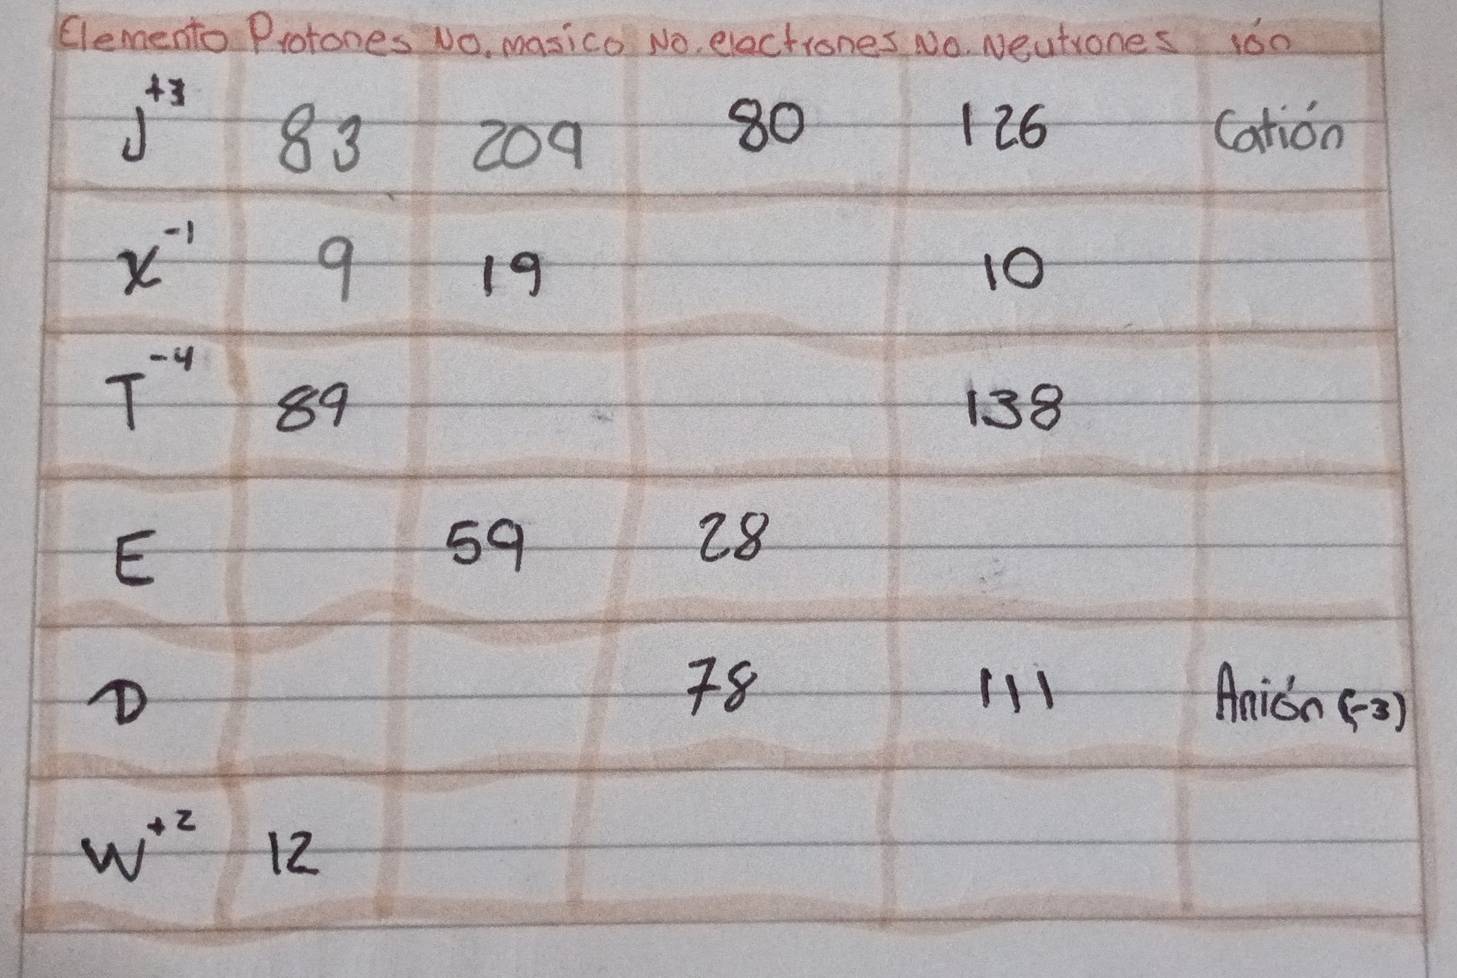 Elemento Protones No. masico No. electrones No. Neutrones ión
J+3 83 209 80 126 Catión
X-1 9 19 10
T-4 89 138
E 59 28
D 78 111 Anión (-3)
W+2 12